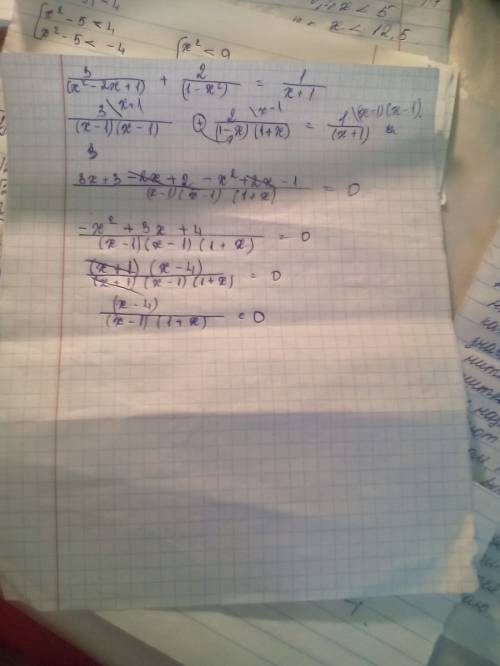 x² - 5 < 4
x² - 5 < -4
x² < 9
x < 5
x < 12,5
3/(x² - 2x + 1) + 2/(1 - x²) = 1/(x + 1)
3\x+1/(x-1)(x-1) + 2\x-1/(1-x)(1+x) = 1\(x-1)(x-1)/(x+1)
3
3x + 3 - 2x + 2 - x² + 2x - 1/(x-1)(x-1)(1+x) = 0
-x² + 3x + 4/(x-1)(x-1)(1+x) = 0
(x+1)(x-4)/(x+1)(x-1)(1+x) = 0
(x-4)/(x-1)(1+x) = 0